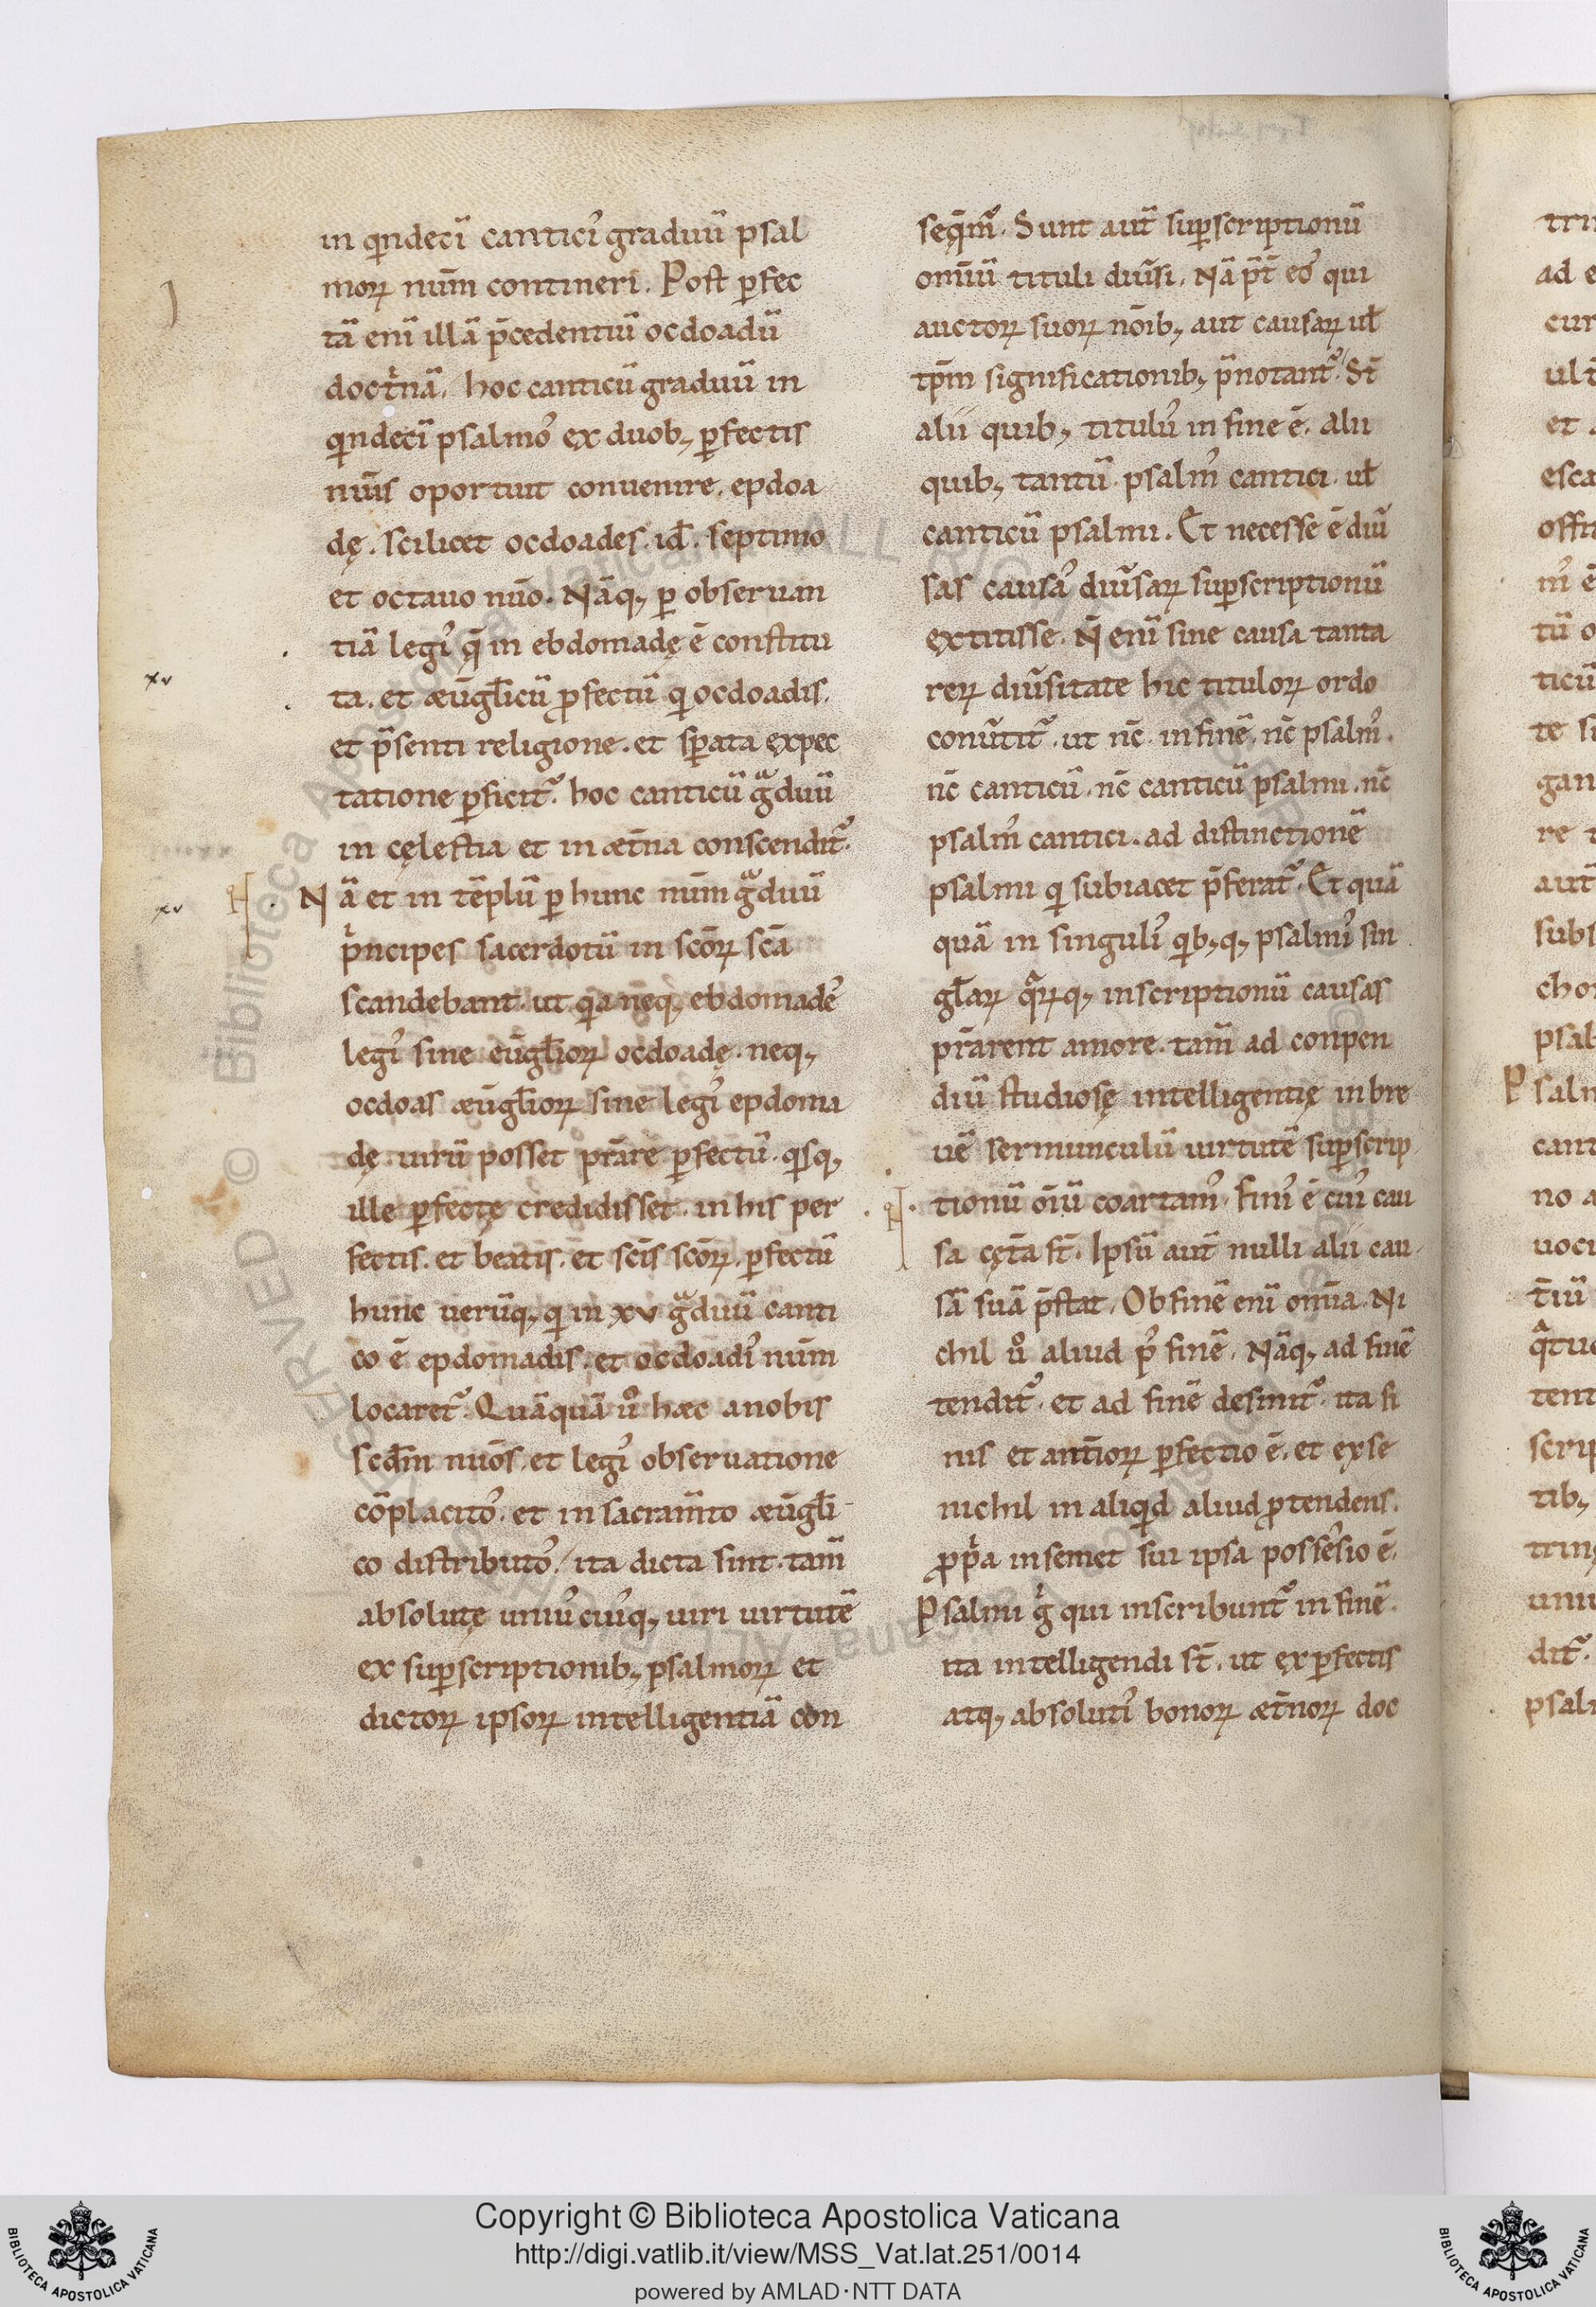 in qndecī canticꝰ graduū psal
moꝝ nūm contineri. Post ꝑfec
tā enī illā p̄cedentiū ocdoadū
doctͥnā, hoc canticū graduū in
qndecī psalmoꝰ ex duob; ꝑfectis
nūis oportuit conuenire. epdoa
dę. scilicet ocdoades. id̄. septimo
et octauo nūo. Nāq; ꝑ obseruan
tiā legiꝰ q̄ in ebdomadę ē constitu
ta. et æūgl̄icū ꝓfectū qi ocdoadis.
et p̄senti religione. et sꝑata expec
tatione ꝑficit᷑. hoc canticū gͣduū
in cęlestia et in æt̄na conscendit᷑.
Nā et in tēplū ꝑ hunc nūm gͣduū
pͥncipes sacerdotū in sc̄oꝝ sc̄a
scandebant. ut qia neq; ebdomadeꝰ
legiꝰ sine eūgl̄ioꝝ ocdoadę. neq;
ocdoas æūgl̄ioꝝ sine legiꝰ epdoma
dę. uirū posset p̄rare ꝑfectū. qisq;
ille ꝑfectę credidisset. in his per
fectis. et beatis. et sc̄is sc̄oꝝ. ꝑfectū
hunc uerūq; qi in xv gͣduū canti
co ē epdomadis. et ocdoadiꝰ nūm
locaret᷑. Quāquā uͦ hæc anobis
scd̄m nūos. et legiꝰ obseruatione
cōplacitoꝰ. et in sacram̄to æūgl̄i
co distributoꝰ, ita dicta sint. tam̄
absolutę uniuꝰcuiꝰq; uiri uirtutē
ex suꝑscriptionib; psalmoꝝ et
dictoꝝ ipsoꝝ intelligentiā con
seq̄mͬ. Sunt aut̄ suꝑscriptionū
om̄iū tituli diūsi. Nā p̄t eoꝰ qui
auctoꝝ suoꝝ nōib; aut causaꝝ ul̄
tp̄m significationib; p̄notant᷑. St̄
alii quib; tituluꝰ in fine ē. alii
quib; tantū psalmꝰ cantici. ul̄
canticū psalmi. Et necesse ē diū
sas causaꝰ diūsaꝝ suꝑscriptionū
extitisse. N̄ enī sine causa tanta
reꝝ diūsitate hic tituloꝝ ordo
conūtit᷑. ut nc̄. infinē. nc̄ psalmꝰ.
nc̄ canticū. nc̄ canticū psalmi. nc̄
psalmꝰ cantici. ad distinctionē
psalmi qi subiacet p̄ferat᷑. Et quā
quā in singuliꝰ qib;q; psalmiꝰ sin
gl̄aꝝ qͣꝝq; inscriptionū causas
p̄rarent amore. tam̄ ad conpen
diū studiosę intelligentię in bre
uē sermunculū uirtutē suꝑscrip
tionū oīū coartamꝰ. finiꝰ ē cuiꝰ cau
sa cęt̄a st̄. Ipsū aut̄ nulli alii cau
sā suā p̄stat. Ob finē enī om̄ia. Ni
chil uͦ aliud pꝰ finē. Nāq; ad finē
tendit᷑. et ad finē desinit᷑. ita fi
nis et ant̄ioꝝ ꝑfectio ē. et ex se
nichil in aliqid aliud ꝓtendens.
ꝓpͥa in semet sui ipsa possesꝰio ē.
Psalmi gͥ qui inscribunt᷑ in finē.
ita intelligendi st̄. ut ex ꝑfectis
atq; absolutiꝰ bonoꝝ æt̄noꝝ doc
xv
xv
Copyright © Biblioteca Apostolica Vaticana
http://digi.vatlib.it/view/MSS_Vat.lat.251/0014
powered by AMLAD·NTT DATA
BIBLIOTECA APOSTOLICA VATICANA
BIBLIOTECA APOSTOLICA VATICANA